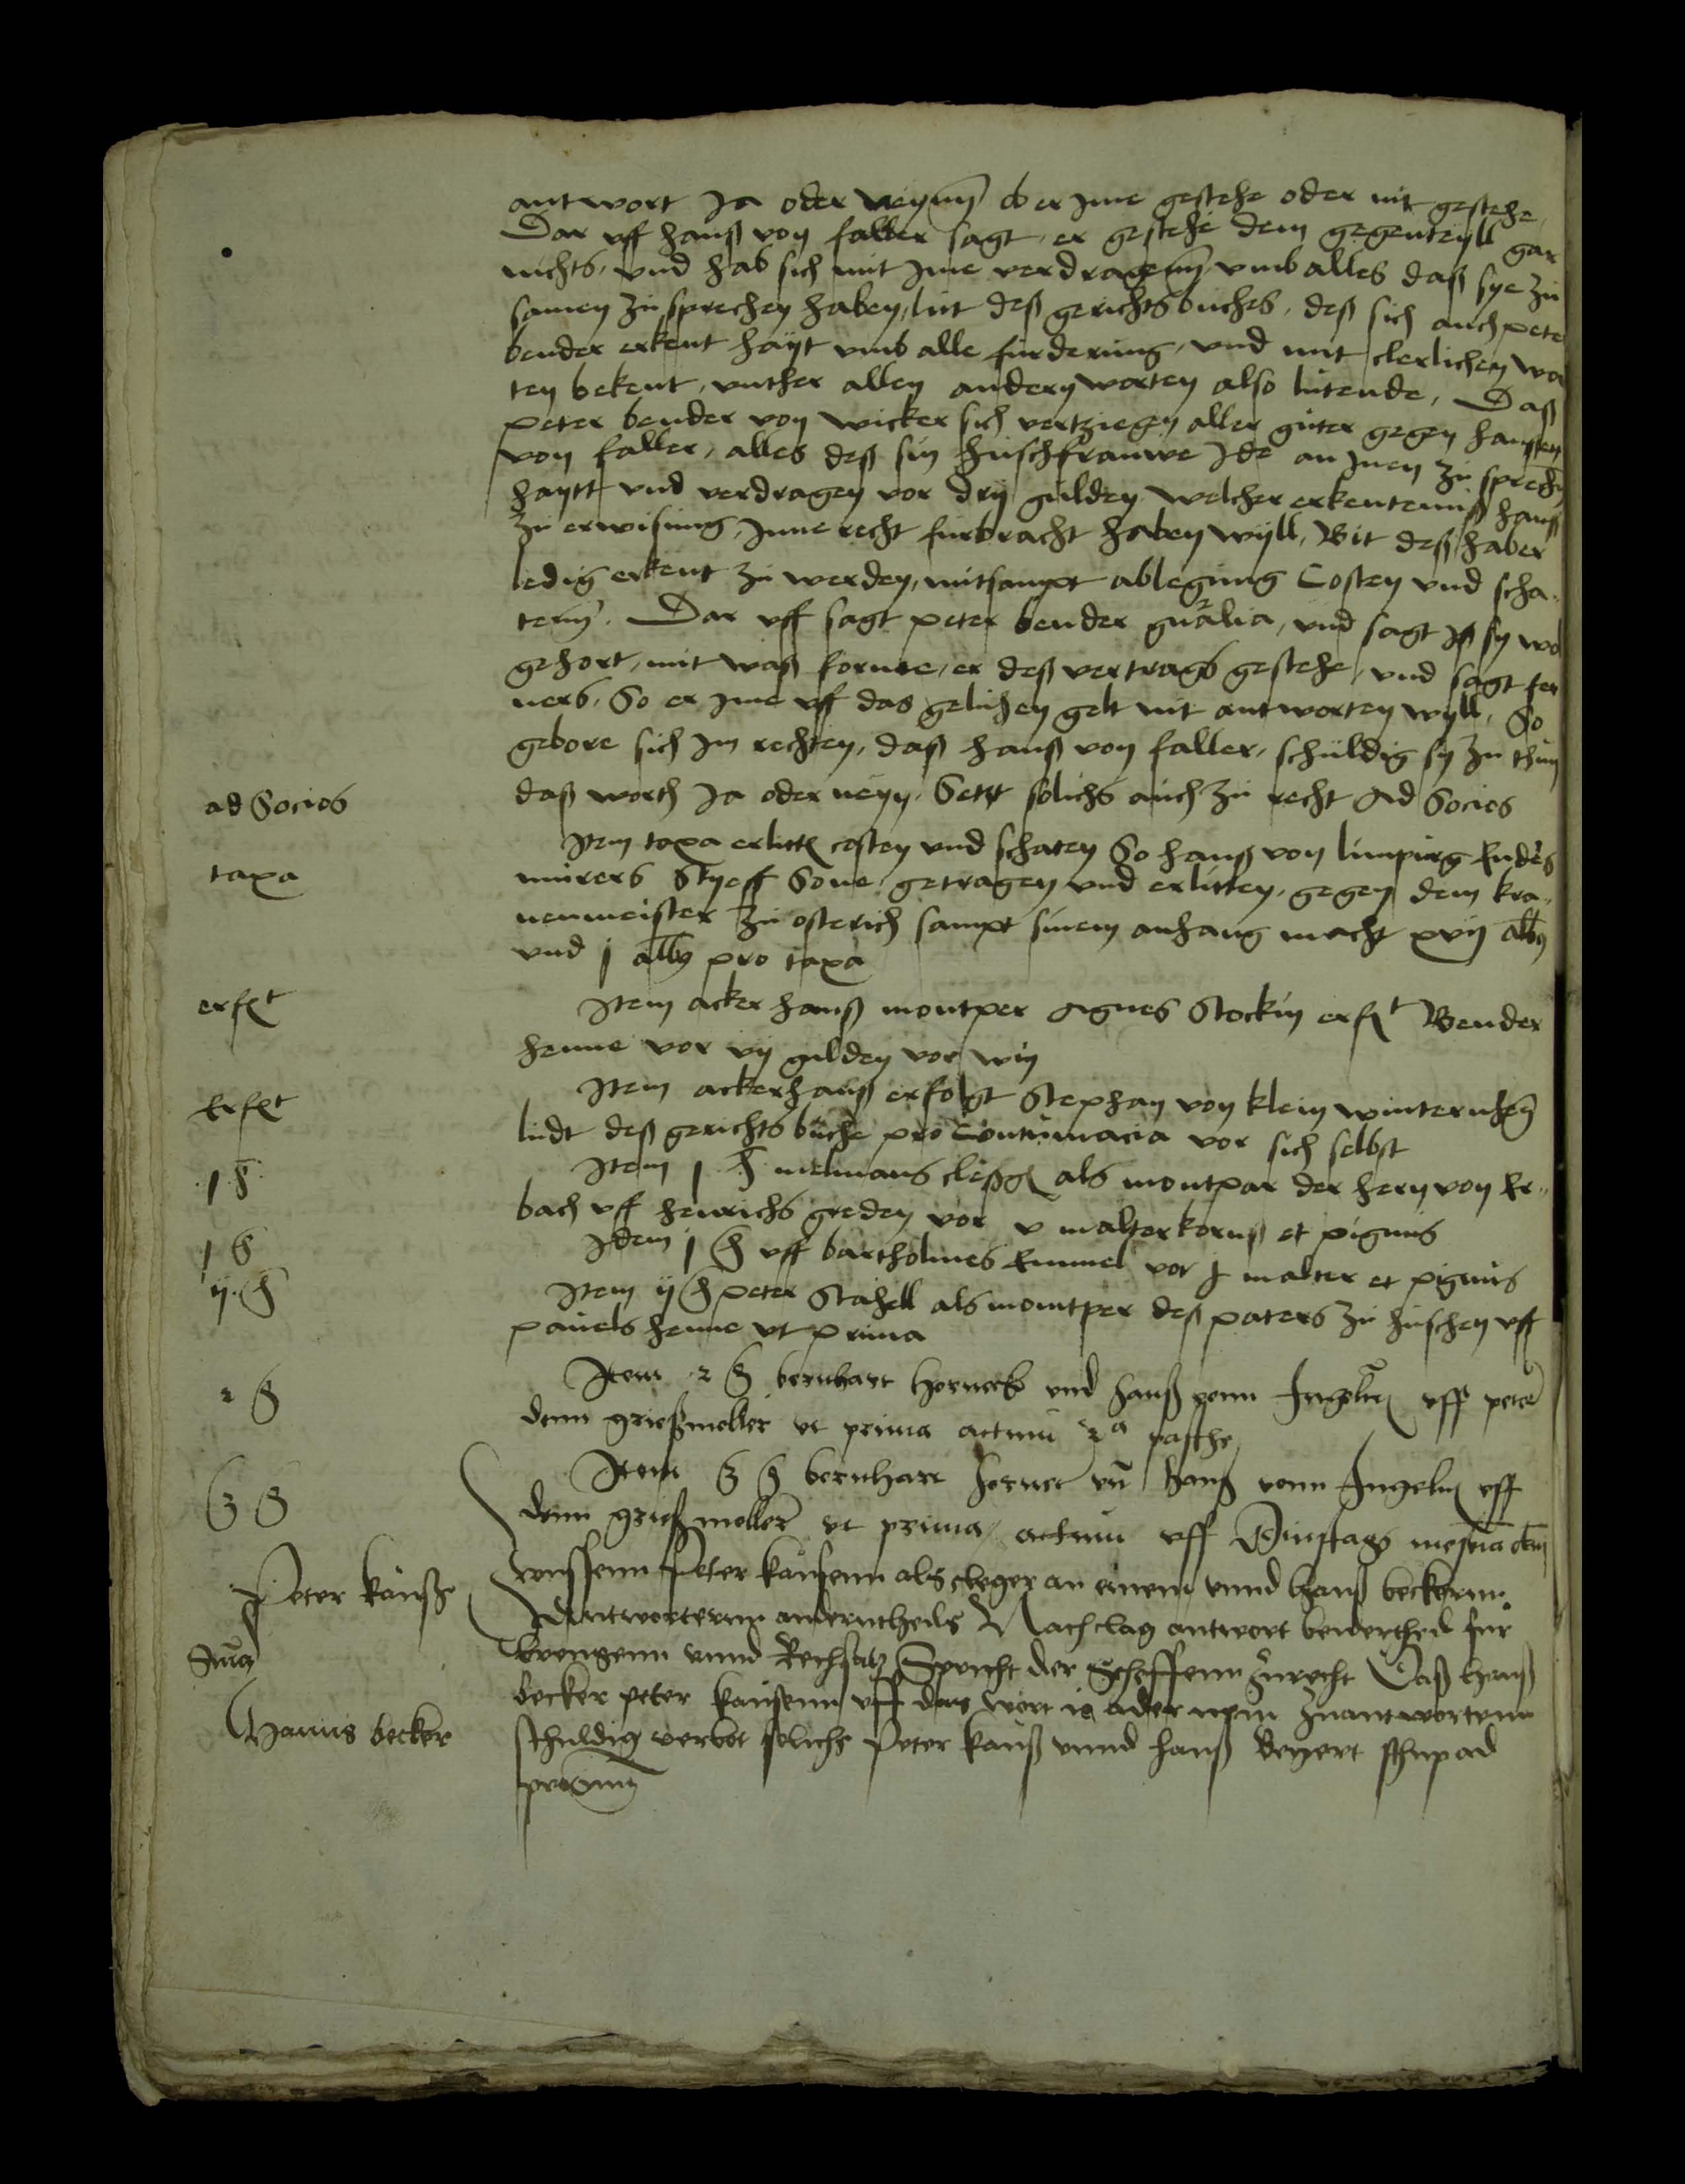 antwort Ja oder neynn ob er Jme gestehe oder nit gestehe
Dar uff hanß von faller sagt er gestehe dem gegenteyll gar
nichts, und hab sich mit Jme verdragenn umb alles daß sye zu
samen zu sprechen haben, lut deß gerichts buches, deß sich auch pete
bender erkent hayt umb alle furderung, und mit clerlichen wor
ten bekent, unther allen andern worten also lutende, Daß
peter bender von wicker sich vertziegen aller guter gegen hansen
von faller, alles deß sin huschfrauwe Ide an Jnen zu sprechen
haytt und verdragen vor dry gulden welcher erkentenuß hanß
zu erwisung, Jnne recht furbracht haben wyll, Bit deß haber
ledig erkent zu werden, mitsampt ablegung Costen und scha-
tenn. Dar uff sagt peter bender gnalia, und sagt sy wol
gehort, mit waß forme, er deß vertrags gestehe, und sagt fer
ners. So er Jme uff das geluhen gelt nit antworten wyll, So
gebore sich Jm rechten, daß hanß von faller, schuldig sy zu thun
ad Socios
daß worth Ja oder neyn. Setzt solichs auch zu recht Ad Socios
taxa
Item taxa erlitt costen und schaten So hanß von limpurg Endes
murers Styeff Sone getragen und erlitten, gegen dem kra-
nenmeister zu osterich sampt sinem anhang macht xvij albus
und j albus pro taxa
erft
Item acker hanß montper Agnes Stockin erft Bender
henne vor vij gulden vor win
Erft
Item ackerhanß erfolgt Stephan von klein winternhen
ludt deß gerichts buche pro Contumacia vor sich selbst
1 h
Item 1 h melmans cleßgin als montpar der hern von Er-
bach uff henrichs greden vor v malter korns et pignus
1 h
Idem j h uff bartholmes Emmel vor j malter et pignus
ij h
Item ij h peter Stahell als momtper deß paters zu huschen uff
pauels henne ut prima
2 h
Item 2 h bernhart horneck und hanß vonn Ingeln uff peter
denn grießmoller ut prima actum 2a pasche
3 h
Item 3 h bernhart horne un hanß vonn Ingeln uff
denn grießmoller ut prima actum uff Dinstags
Peter kauß
Zwussenn Peter kausenn als cleger an einem unnd hanß beckernn
Antworternn anderntheils Nach clag antwort beidertheil fur
brengenn unnd Rechsatz Spricht der Scheffenn zurecht Daß hanß
becker peter kausenn uff das wort ja ader neyn zuantwortenn
Hanns becker
schuldig verbot solichs Peter kauß unnd hanß Beyert
proximum